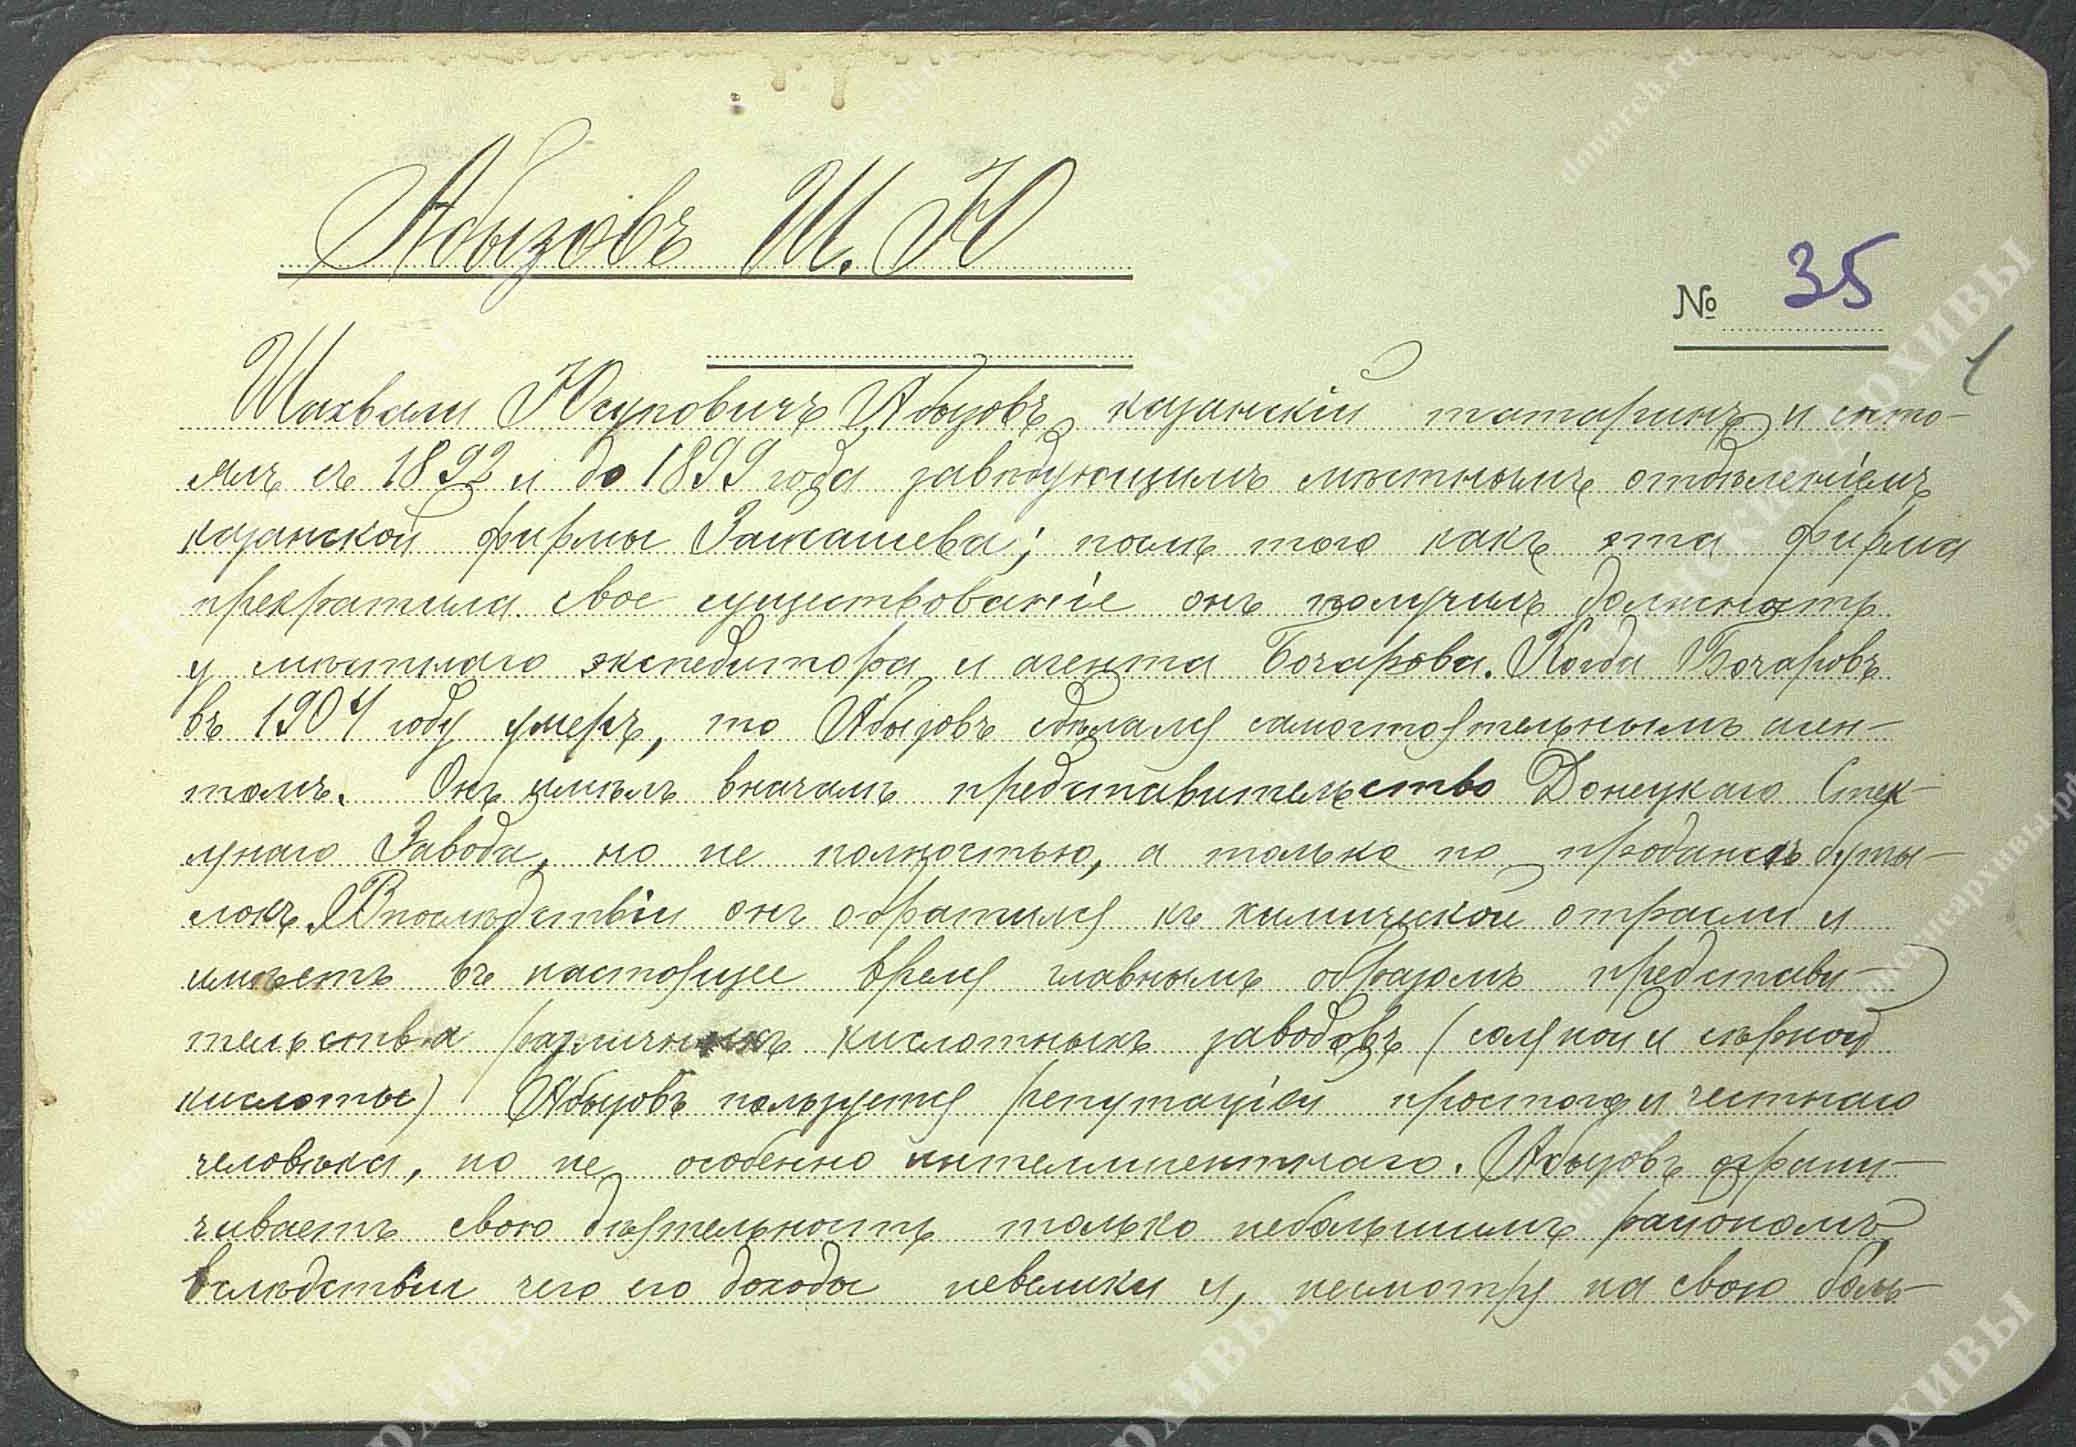 Абызовъ Ш. Ю
№ 35
1
Шахвали Юсуповичъ Абызовъ, казанскій татаринъ и состо-
ялъ съ 1892 и до 1899 года завѣдующимъ мѣстнымъ отдѣленіемъ
казанской фирмы; послѣ того какъ эта фирма
прекратила свое существованіе онъ получилъ должность
у мѣстнаго экспедитора и агента Бочарова. Когда Бочаровъ
въ 1904 году умеръ, то Абызовъ сдѣлался самостоятельнымъ аген-
томъ. Онъ имѣлъ вначалѣ представительство Донецкаго Стек-
лянаго Завода, но не полностью, а только по продажѣ буты-
локъ. Впослѣдствіи онъ обратился къ химической отрасли и
имѣетъ въ настоящее время главнымъ образомъ представи-
тельства различныхъ кислотныхъ заводовъ (соляной и сѣрной
кислоты) Абызовъ пользуется репутаціей простого и честнаго
человѣка, но не особенно интеллигентнаго. Абызовъ ограни-
чиваетъ свою дѣятельность только небольшимъ раіономъ,
вслѣдствіи чего его доходы невелики и, несмотря на свою боль-